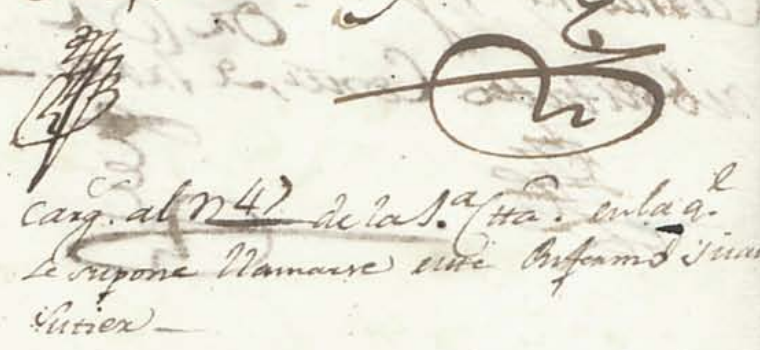 Carg. al N 47 de la S.a Ctta. en la q.l
se supone llamarse este Juan
Gutierr